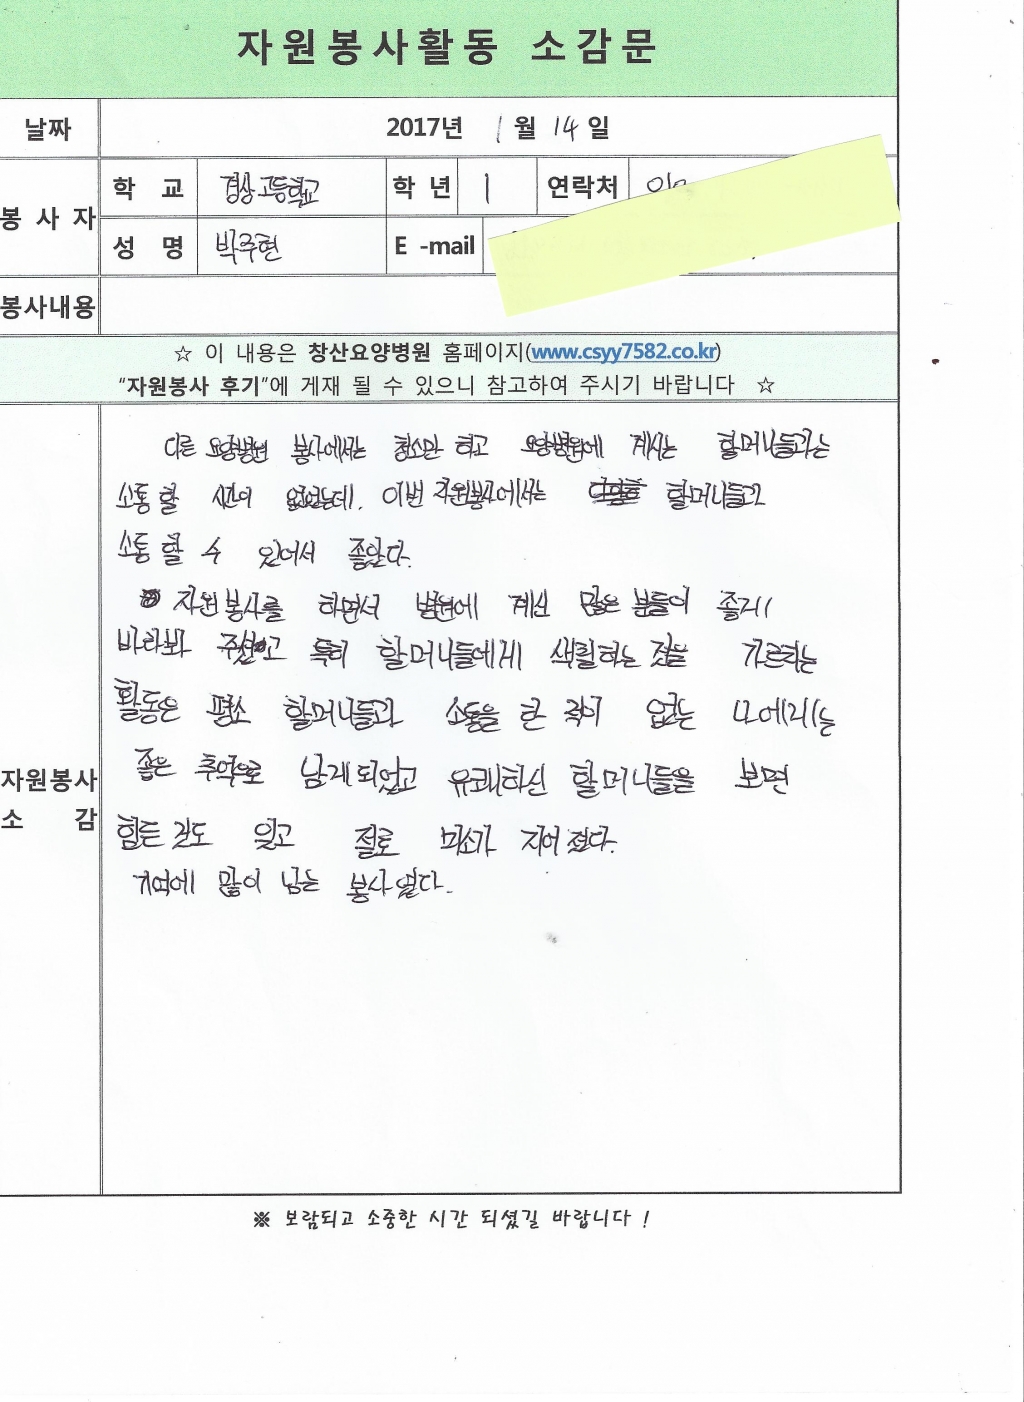 자원봉사활동 소감문
날짜 2017년 1월 14일
봉사자
학 교 경상고등학교 학 년 1 연락처
성 명 박주현 E -mail
봉사내용
☆ 이 내용은 창산요양병원 홈페이지(www.csyy7582.co.kr)
"자원봉사 후기"에 게재 될 수 있으니 참고하여 주시기 바랍니다 ☆
자원봉사
소 감
다른 요양병원 봉사에서는 청소만 하고 요양병원에 계시는 할머니들과는
소통 할 시간이 없었는데, 이번 자원봉사에서는 할머니들과
소통 할 수 있어서 좋았다.
자원봉사를 하면서 병원에 계신 많은 분들이 좋게
바라봐 주셨고 특히 할머니들에게 색칠하는 것을 가르치는
활동은 평소 할머니들과 소통을 한 적이 없는 나에게는
좋은 추억으로 남게 되었고 유쾌하신 할머니들을 보면
힘든 것도 잊고 절로 미소가 지어 졌다.
기억에 많이 남는 봉사 였다.
※ 보람되고 소중한 시간 되셨길 바랍니다 !